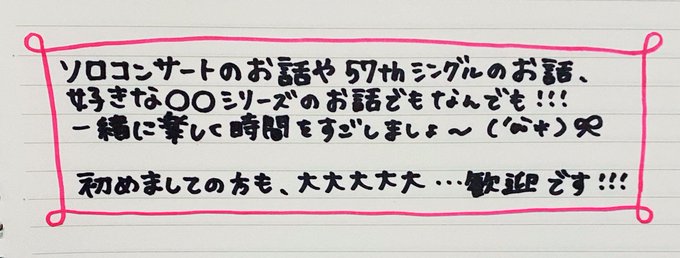 ソロコンサートのお話や57thシングルのお話、
好きな○○シリーズのお話でもなんでも!!!
一緒に楽しく時間をすごしましょ〜
初めましての方も、大大大大大…歓迎です!!!